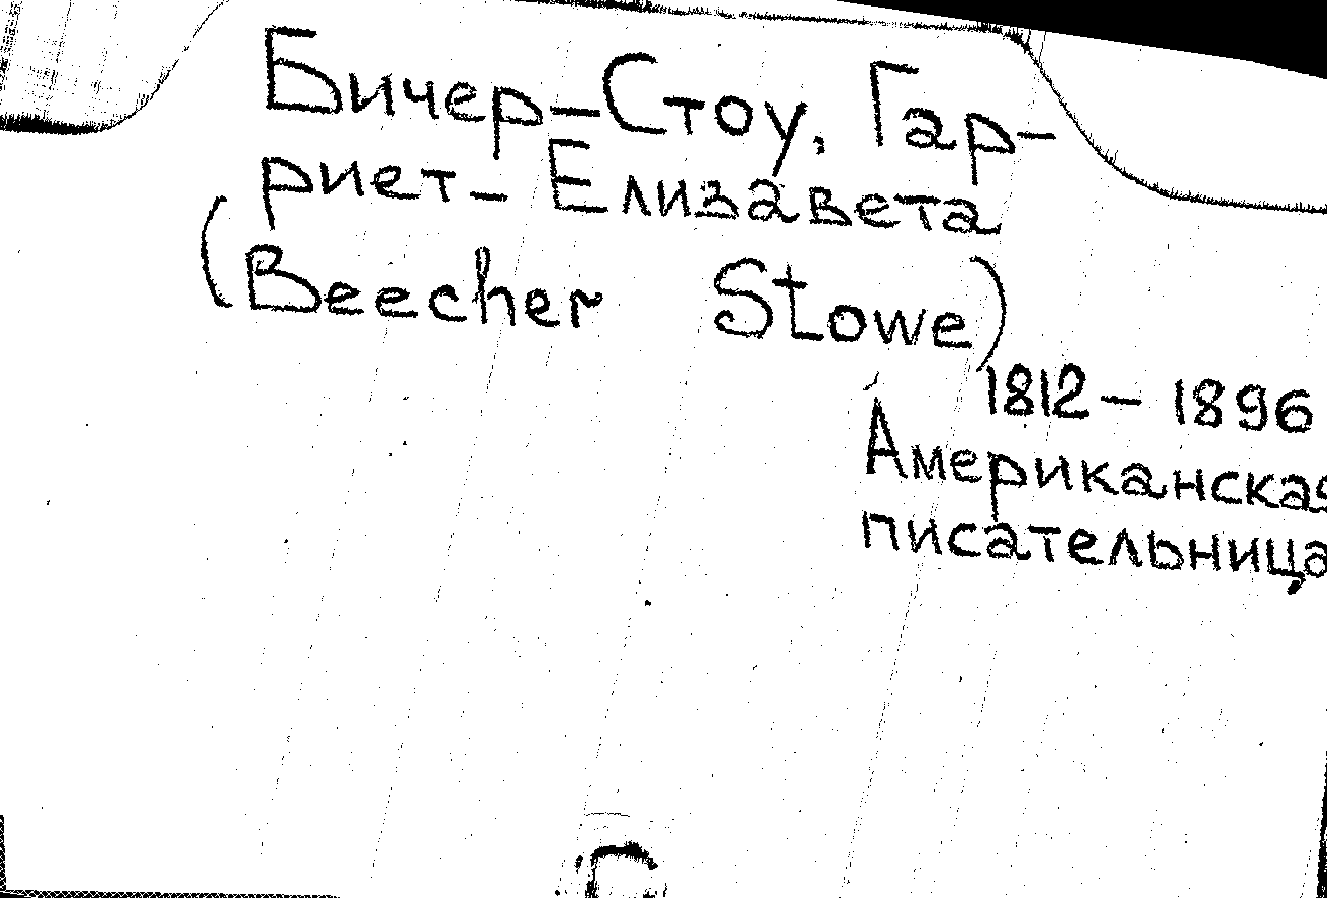 Бичер-Стоу, Гар-
риет-Елизавета
(Beecher Stowe)
1812-1896
Американская
писательница